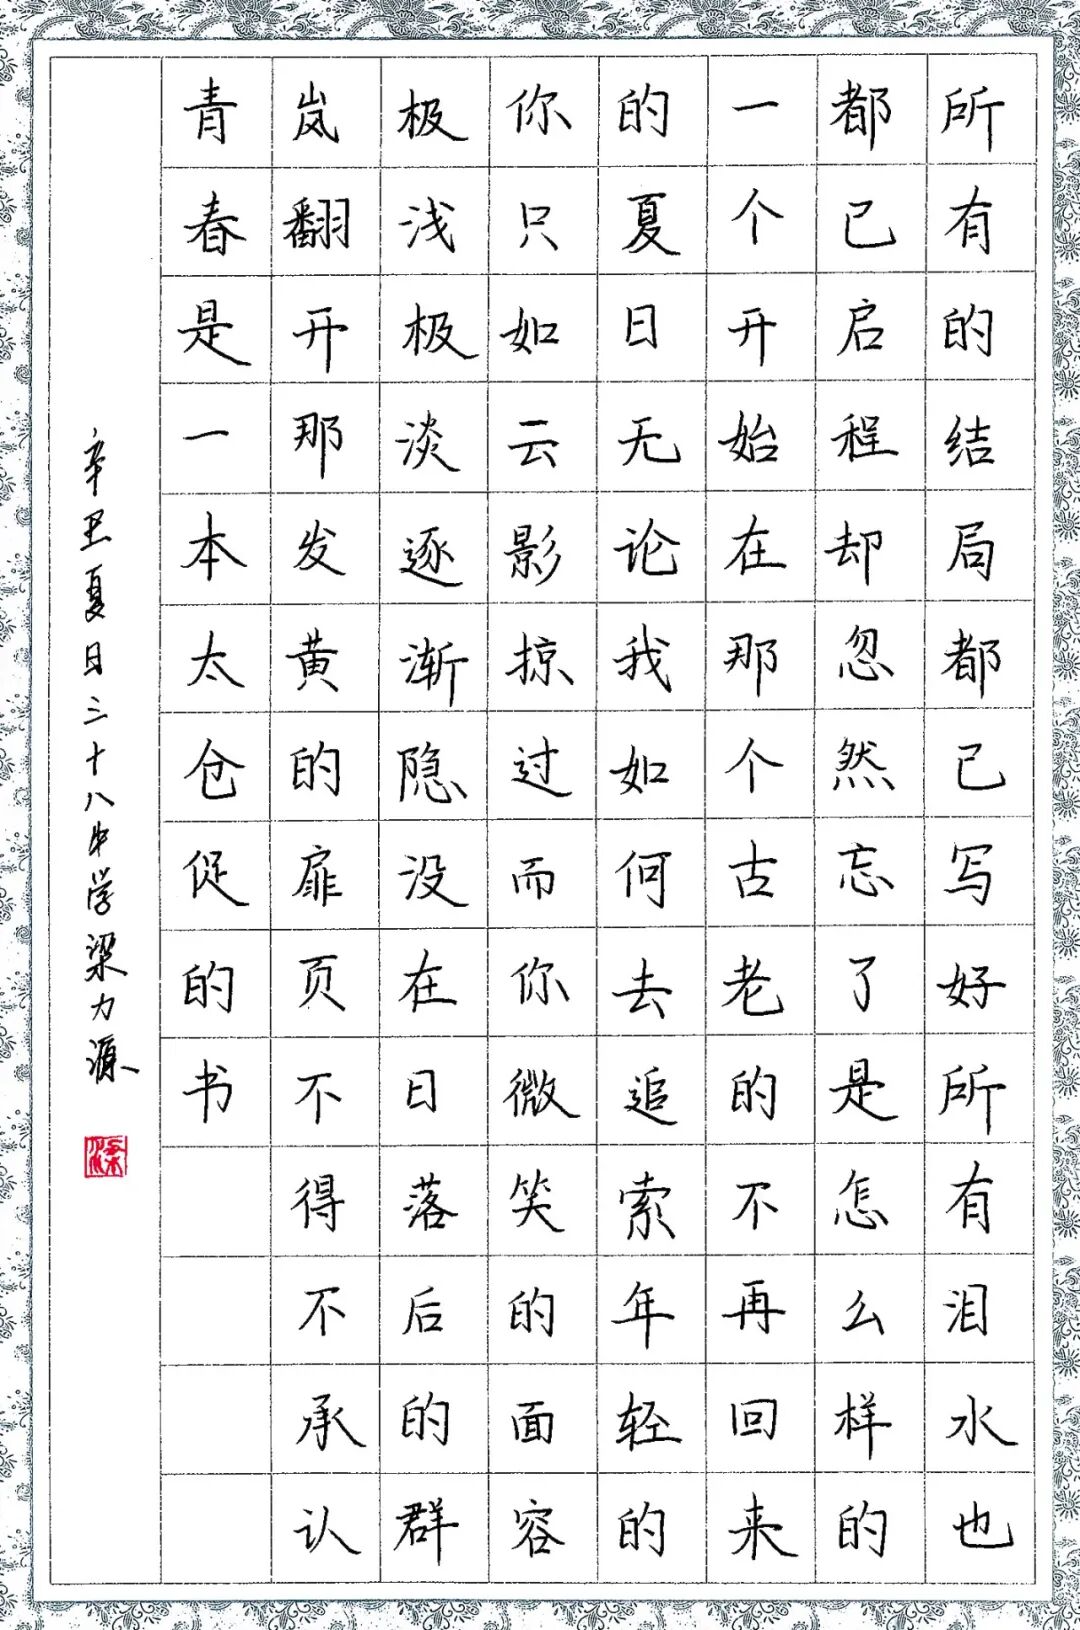 所有的结局都已写好所有泪水也
都已启程却忽然忘了是怎么样的
一个开始在那个古老的不再回来
的夏日无论我如何去追索年轻的
你只如云影掠过而你微笑的面容
极浅极淡逐渐隐没在日落后的群
岚翻开那发黄的扉页不得不承认
青春是一本太仓促的书
辛丑夏日三十八中学梁力源